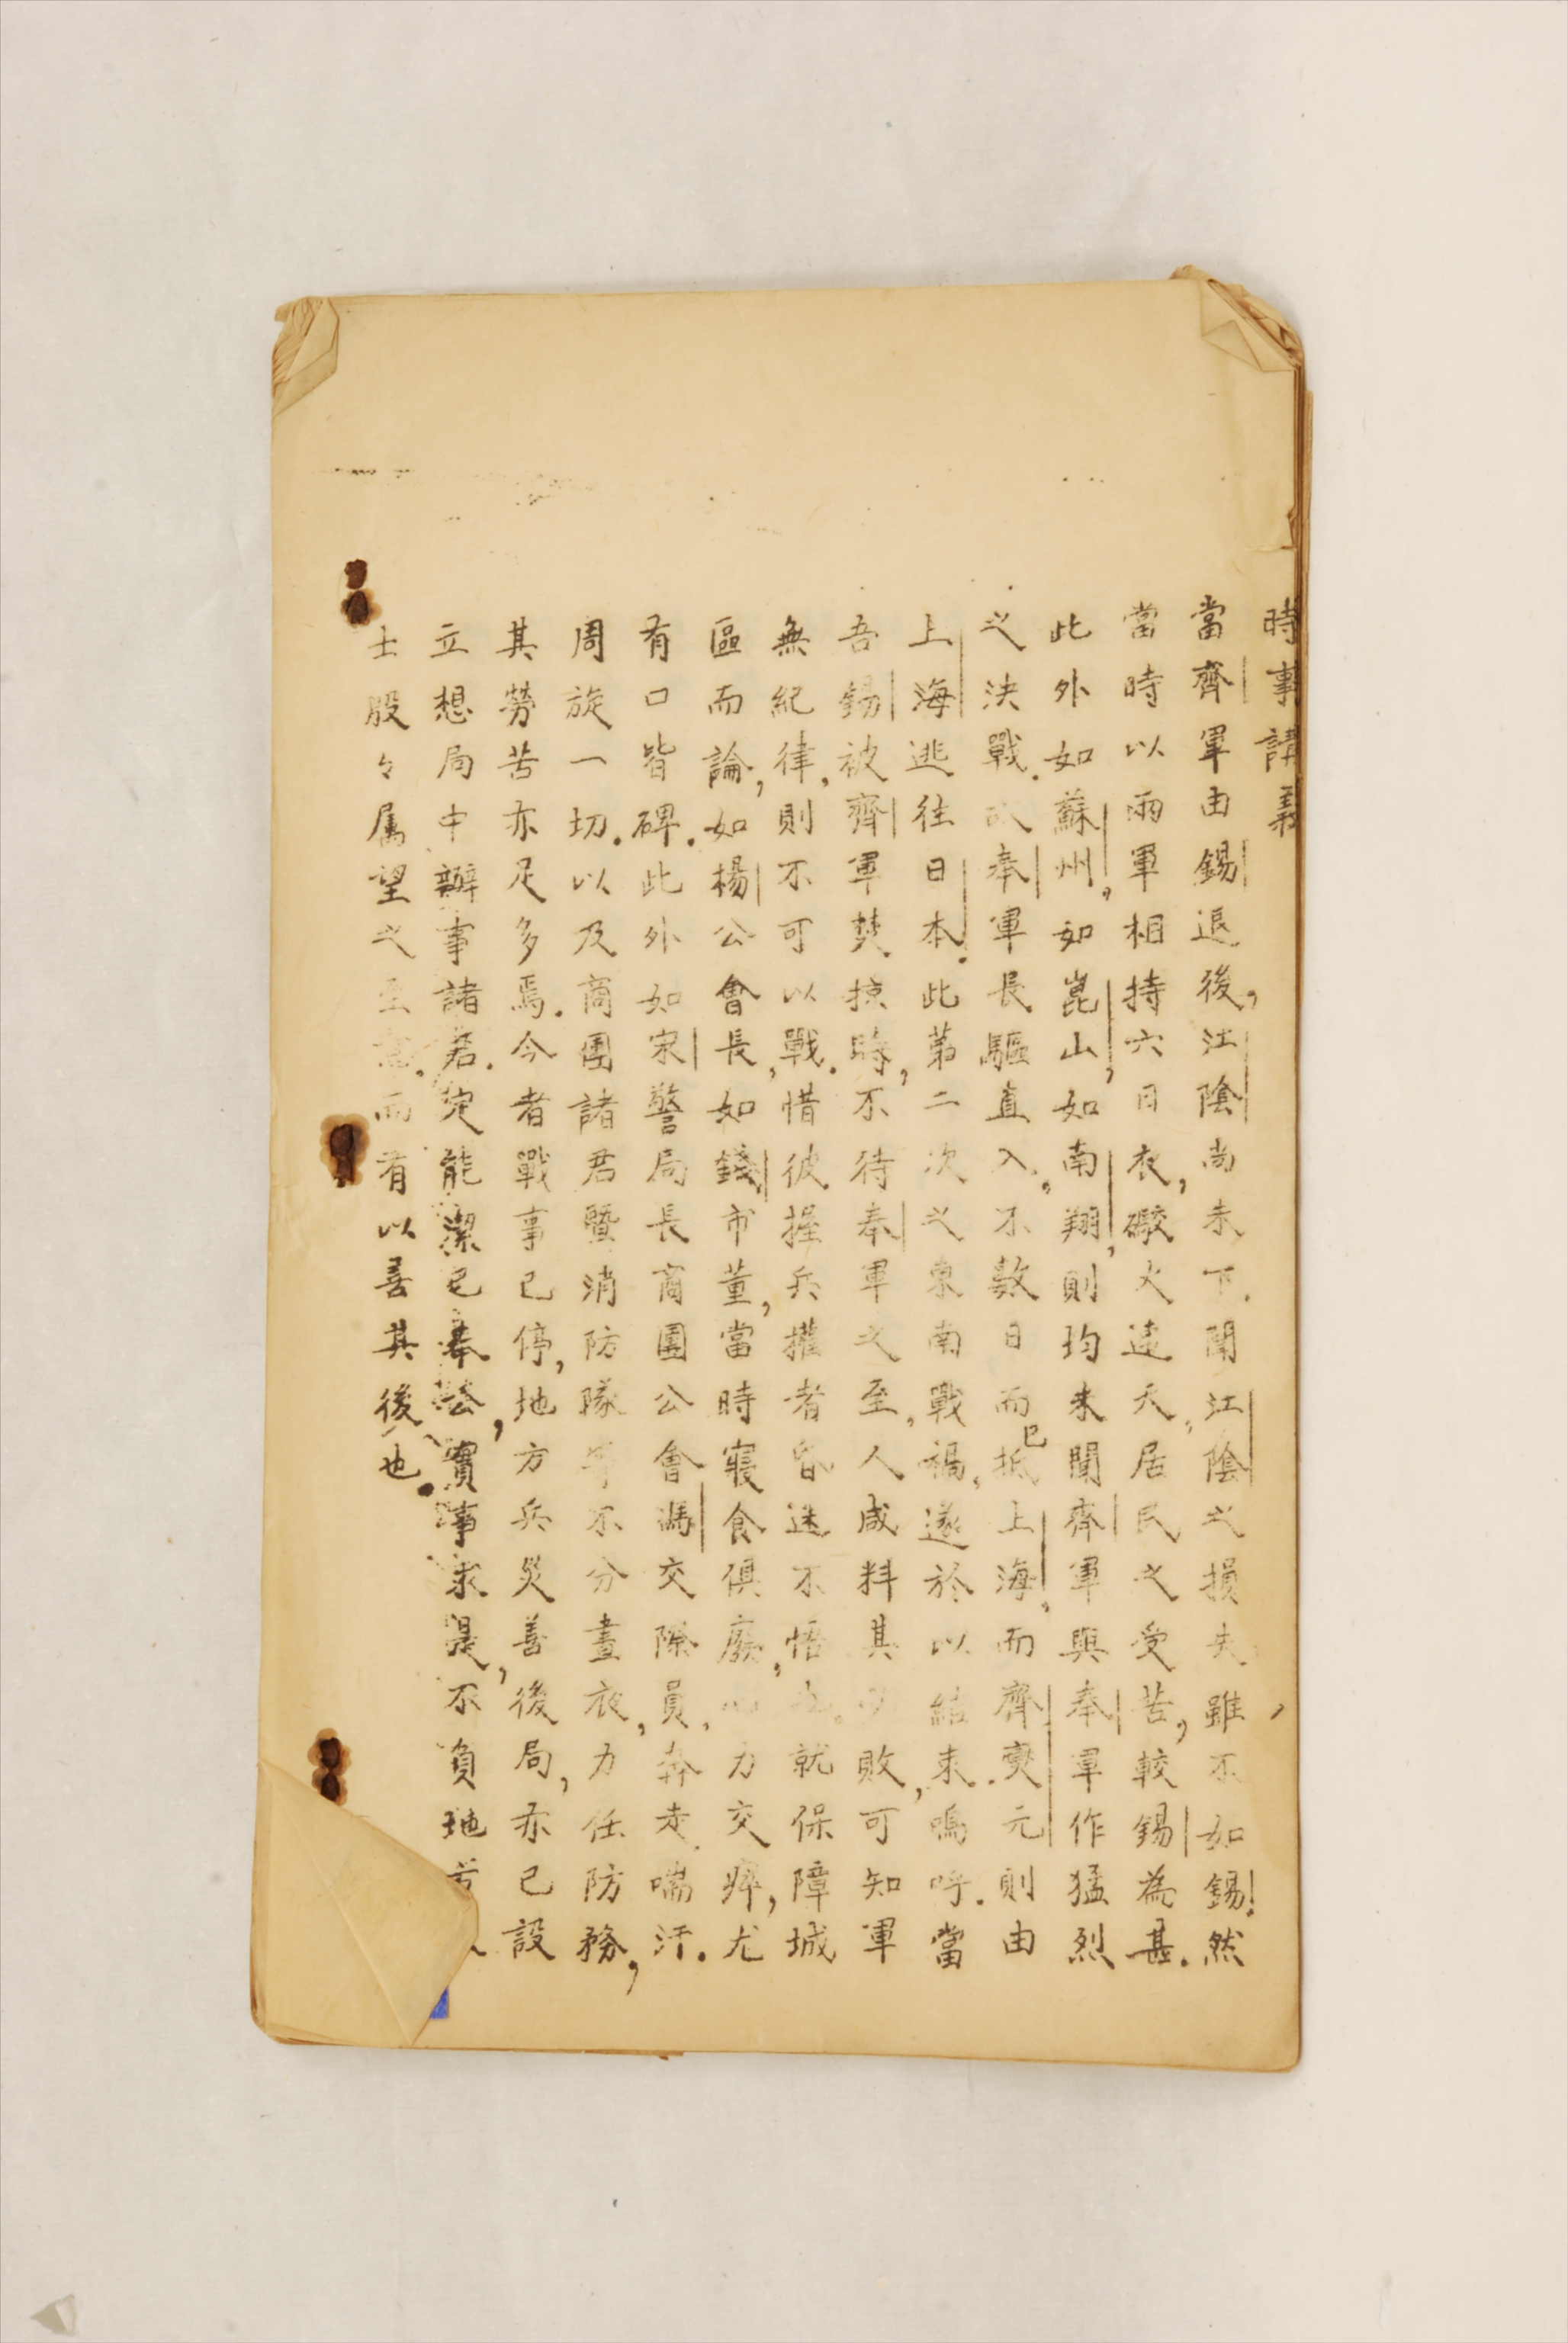 時事講義
當齊軍由錫退後,江陰尚未下.聞江陰之損失.雖不如錫.然
當時以兩軍相持六日衣,礮火連天,居民之受苦,較錫為甚.
此外如蘇州,如崑山,如南翔,則均未聞齊軍與奉軍作猛烈
之決戰.故奉軍長驅直入.不數日而已抵上海,而齊爕元則由
上海逃往日本.此第二次之東南戰禍,遂於以結束.嗚呼.當
吾錫被齊軍焚掠時,不待奉軍之至,人咸料其必敗,可知軍
無紀律,則不可以戰.惜彼握兵權者昏迷不悟也.就保障城
區而論,如楊公會長,如錢市董,當時寢食俱廢,心力交瘁,尤
有口皆碑.此外如宋警局長商團公會馮交際員,奔走喘汗.
周旋一切.以及商團諸君暨消防隊等不分晝夜,力任防務,
其勞苦亦足多焉.今者戰事已停,地方兵災善後局,亦已設
立想局中辦事諸君.定能潔己奉公,實事求是,不負地
士殷々屬望之至意.而有以善其後也.